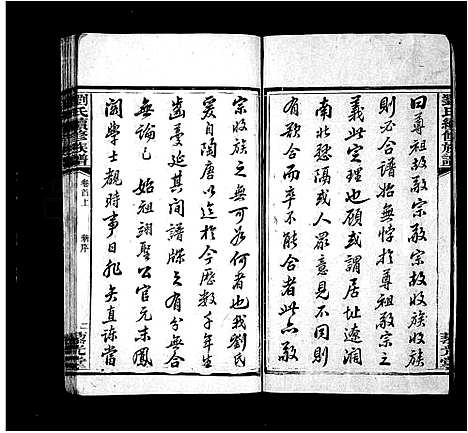 劉氏續修族譜
曰尊祖故敬宗敬宗故收族收族
則必合譜始無悖於尊祖敬宗之
義此定理也顧或謂居址遼濶
南北懸隔或人眾意見不同
有欲合而卒不能合者此亦敬
宗收族之無可為何者也我劉氏
爰自陶唐以迄於今歷數千年生
齒蔓延其間譜牒之有分無合
無論已 始祖翊聖公官元末鳳
閣學士覩時事日非矢直諫當
劉氏續修族譜
卷首上
序
二